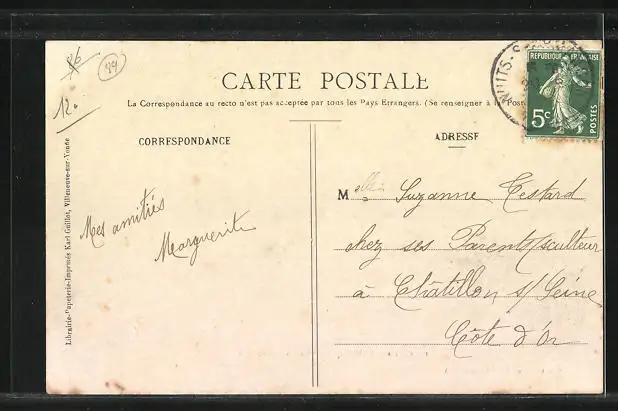 86
89
12.
CARTE POSTALE
La Correspondance au recto n'est pas acceptée par tous les Pays Etrangers. (Se renseigner à la Post
CORRESPONDANCE
ADRESSE
RÉPUBLIQUE FRANÇAISE
5c
POSTES
NUITS-S
Mes amitiés
Marguerite
Melle Suzanne Testard
chez ses Parents/sculteur
à Châtillon s/Seine
Côte d'Or
Librairie-Papeterie-Imprimés Karl Guillot, Villeneuve-sur-Yonne